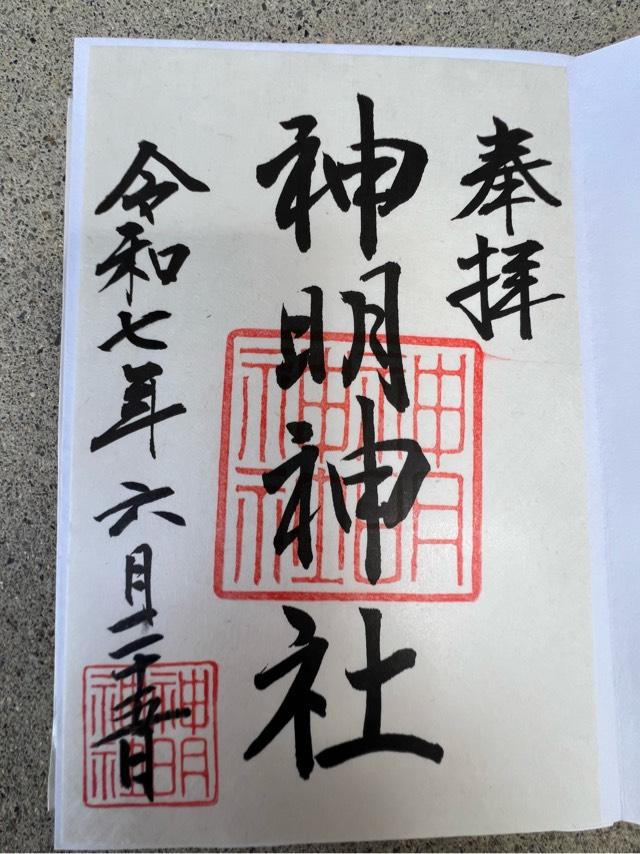 奉拝
神明神社
令和七年六月二十五日
神明
神社
神明
神社